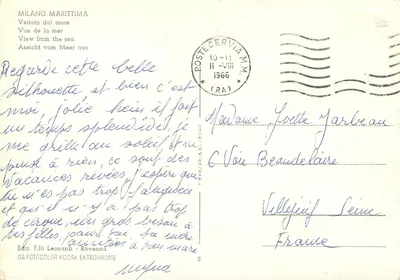 MILANO MARITTIMA
Veduta dal mare
Vue de la mer
View from the sea
Ansicht vom Meer aus
Regarde cette belle
silhouette et bien c'est
moi, jolie hein il fait
un temps splendide, je
me au soleil et ne
pense à rien, ce sont des
vacances rêvées, j'espère que
tu n'es pas trop
et qu'il n'y a pas trop
de cirque, un gros besoin à
tes filles,
mare
POSTE CERVIA M.M.
10-11
11-VIII
1966
(RA)
Madame
6 Voie Beaudelaire
Villejuif Seine
France
Ediz. F.lli Leonardi - Ravenna
DA FOTOCOLOR KODAK EKTACHROME